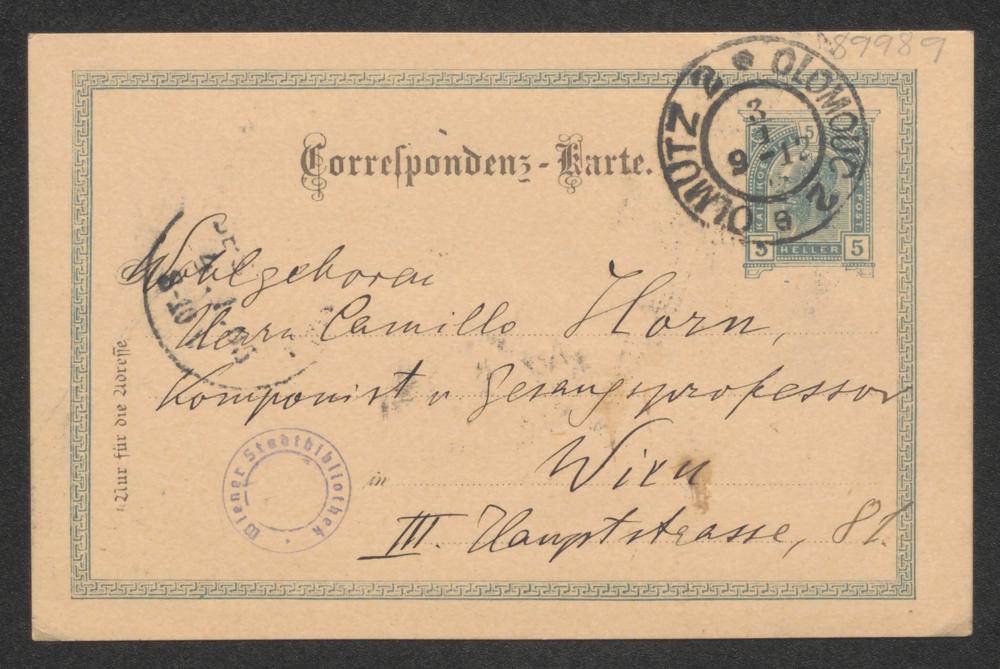 89989
OLMÜTZ 2 * OLOMOUC 2
5
KAIS. KÖN.
POST
5 HELLER 5
Correspondenz-Karte.
Wohlgeboren
Herrn Camillo Horn,
Komponist u Gesangsprofessor
in Wien
III. Hauptstrasse, 81.
Nur für die Adresse
Wiener Stadtbibliothek